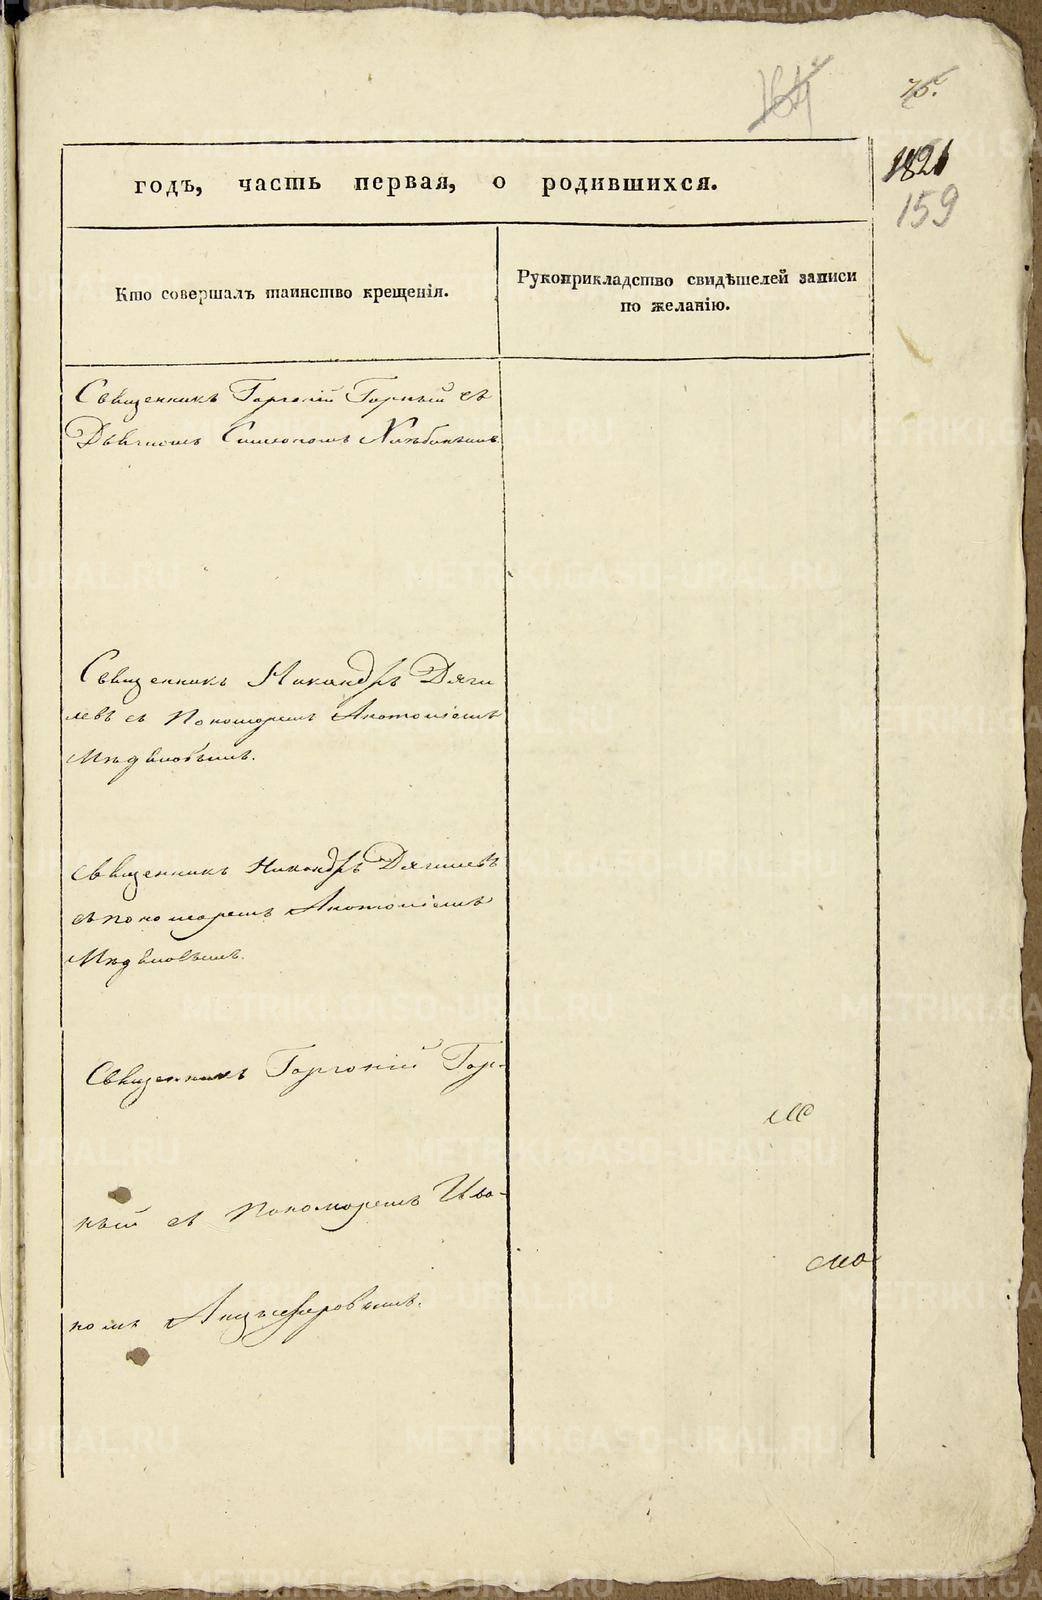 159
годъ, часть первая, о родившихся.
Кто совершалъ таинство крещенія.
Рукоприкладство свидѣтелей записи
по желанію.
Священникъ Горгоній Горный съ
Дьячкомъ Симеономъ
Священникъ Никандръ Дяги
левъ съ Пономаремъ Анатоліемъ
Священникъ Никандръ Дягилевъ
съ пономаремъ Анатоліемъ
Священникъ Горгоній Гор-
ный съ Пономаремъ Ива-
номъ
METRIKI.GASO-URAL.RU